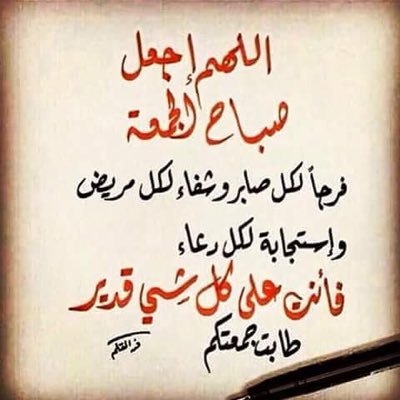 اللهم إجعل
صباح الجمعة
فرجاً لكل صابر وشفاء لكل مريض
وإستجابة لكل دعاء
فأنت على كل شيء قدير
طابت جمعتكم